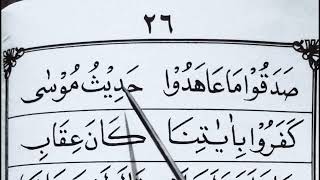 ٢٦
صَدَقُوْا مَا عَاهَدُوْا حَدِيْثُ مُوْسٰى
كَفَرُوْا بِاٰيٰتِنَا كَانَ عِقَابِ